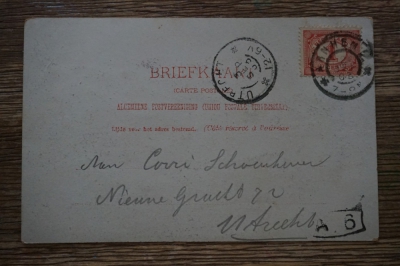 BRIEFKAART
CARTE POSTALE
ALGEMEENE POSTVEREENIGING (UNION POSTALE UNIVERSELLE)
Zijde voor het adres bestemd. (Côté réservé à l'adresse)
UTRECHT
12-6V
ARNHEM
Aan Corrie Schoenheuer
Nieuwe Gracht 72
Utrecht
6